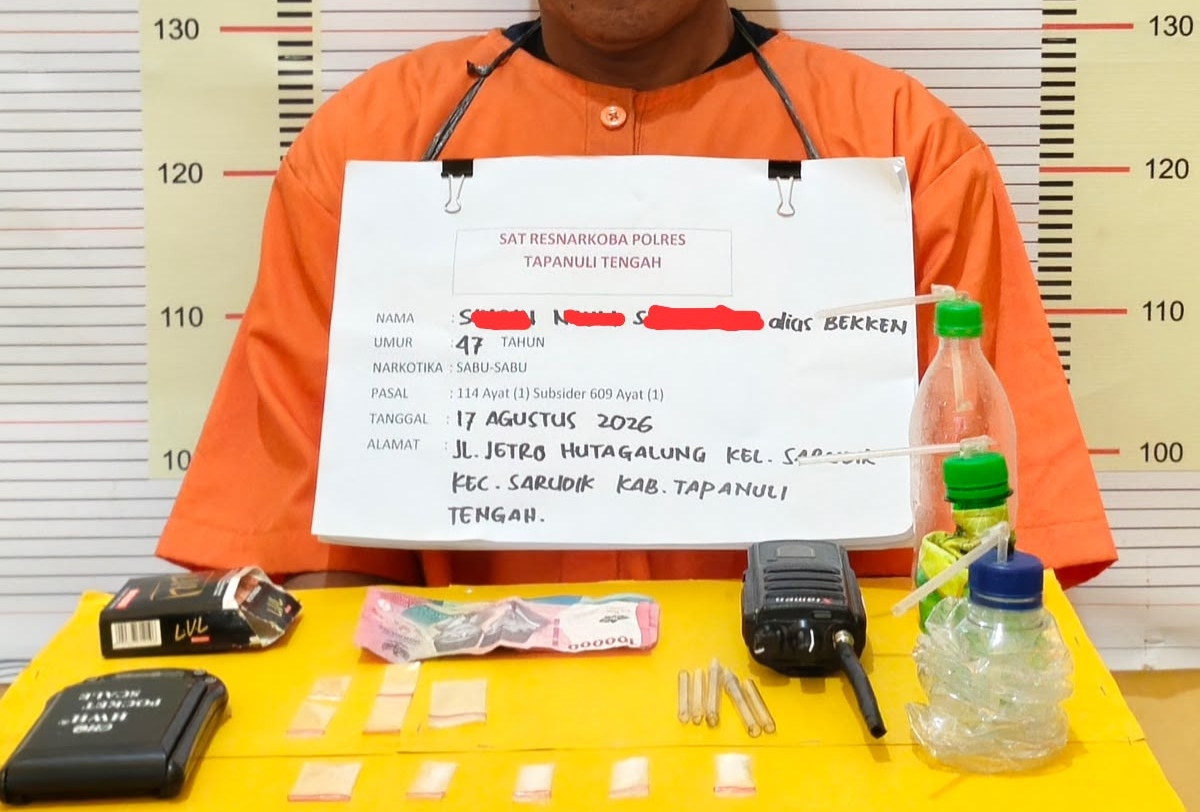 130
130
120
120
110
110
10
100
SAT RESNARKOBA POLRES
TAPANULI TENGAH
NAMA : S N S alias BEKKEN
UMUR : 47 TAHUN
NARKOTIKA : SABU-SABU
PASAL : 114 Ayat (1) Subsider 609 Ayat (1)
TANGGAL : 17 AGUSTUS 2026
ALAMAT : JL. JETRO HUTAGALUNG KEL. SARUDIK
KEC. SARUDIK KAB. TAPANULI
TENGAH.
LVL
100000
POCKET
SCALE
HWH